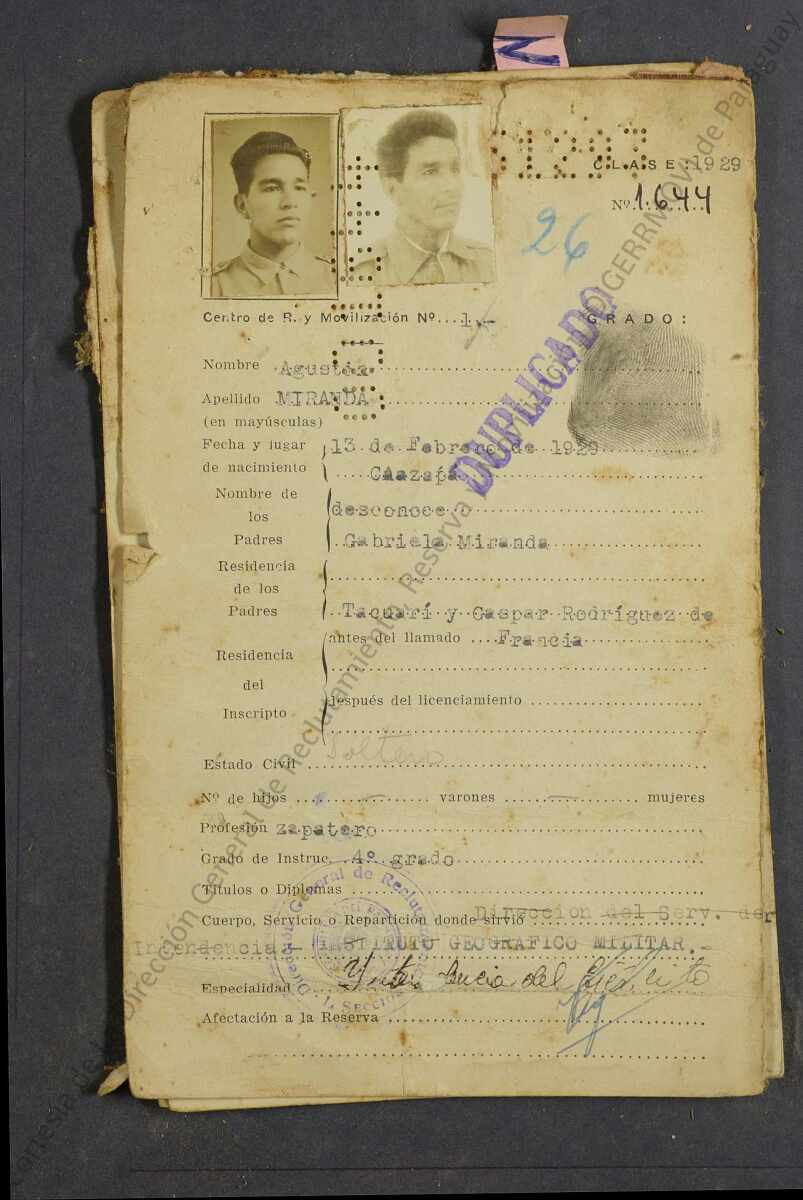 CLASE: 1929
Nº 1.644
26
Centro de R. y Movilización Nº....1.-
GRADO:
DUPLICADO
Nombre Agustín
Apellido MIRANDA
(en mayúsculas)
Fecha y lugar de nacimiento 13 de Febrero de 1929
CAazapá
Nombre de los Padres desconoce
Gabriela Miranda
Residencia de los Padres
Tacuarí y Gaspar Rodríguez de
Residencia del Inscripto antes del llamado Francia
después del licenciamiento
Estado Civil Soltero
Nº de hijos varones mujeres
Profesión zapatero
Grado de Instruc. 4º grado
Títulos o Diplomas
Cuerpo, Servicio o Repartición donde sirvió Dirección del Serv. de
Intendencia.- INSTITUTO GEOGRAFICO MILITAR.-
Especialidad del Ejército
Afectación a la Reserva
Dirección General de Reclutamiento, Reserva y Movilización DIGERRMOV de Paraguay